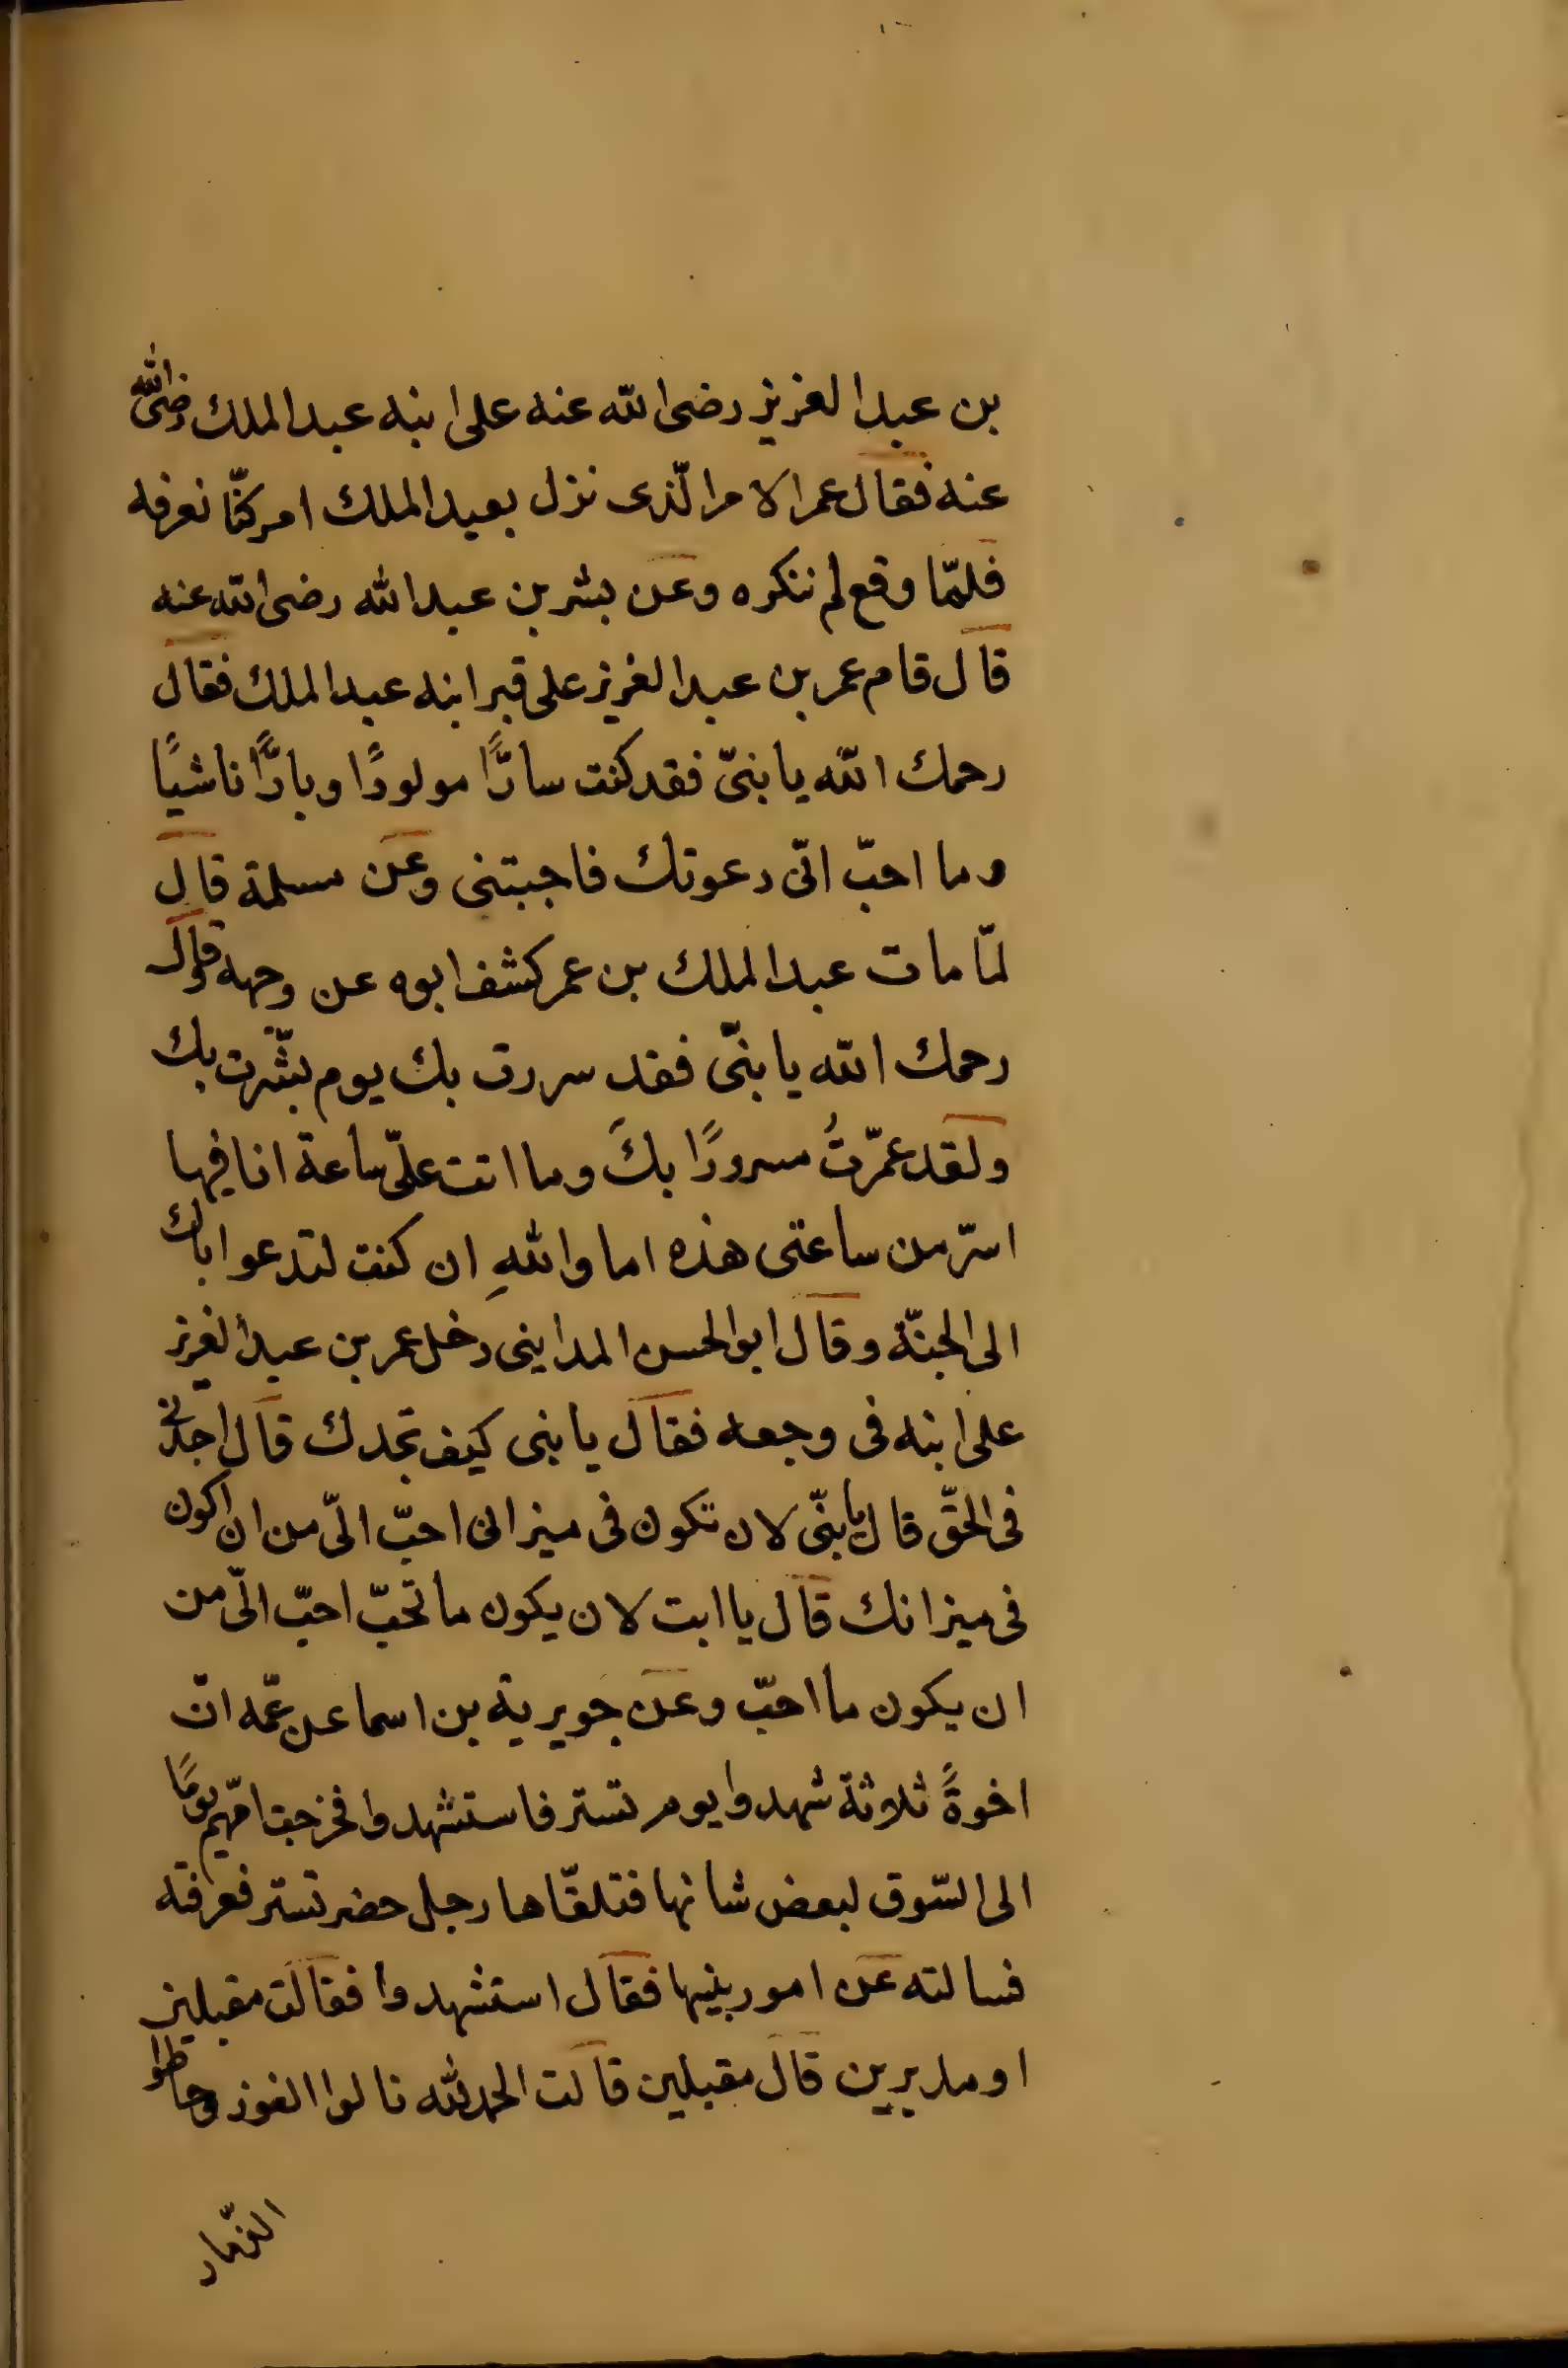 بن عبد العزيز رضى الله عنه على ابنه عبد الملك رضى الله
عنه فقال عمر الامر الّذى نزل بعبد الملك امر كنّا نعرفه
فلمّا وقع لم ننكره وعن بشر بن عبد الله رضى الله عنه
قال قام عمر بن عبد العزيز على قبر ابنه عبد الملك فقال
رحمك الله يا بنىّ فقد كنت سارًّا مولودًا وبارًّا ناشيًا
وما احبّ انّى دعوتك فاجبتنى وعن مسلمة قال
لمّا مات عبد الملك بن عمر كشف ابوه عن وجهه وقال
رحمك الله يا بنىّ فقد سررت بك يوم بشّرت بك
ولقد عمّرتُ مسرورًا بكَ وما اتت علىّ ساعة انا فيها
اسرّ من ساعتى هذه اما واللهِ ان كنت لتدعوا اباك
الى الجنّة وقال ابو الحسن المداينى دخل عمر بن عبد العزيز
على ابنه فى وجعه فقال يا بنى كيف تجدك قال اجدنى
فى الحقّ قال يا بنّى لان تكون فى ميزانى احبّ الىّ من ان اكون
فى ميزانك قال يا ابت لان يكون ما تحبّ احبّ الىّ من
ان يكون ما احبّ وعن جويرية بن اسما عن عمّه انّ
اخوةً ثلاثة شهدوا يوم تستر فاستشهدوا فخرجت امّهم يومًا
الى السّوق لبعض شانها فتلقّاها رجل حضر تستر فعرفته
فسالته عن امور بنيها فقال استشهدوا فقالت مقبلين
او مدبرين قال مقبلين قالت الحمد لله نالوا الفوز وحاطوا
الذّمار